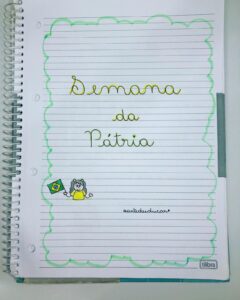 Semana
da
Pátria
tilibra